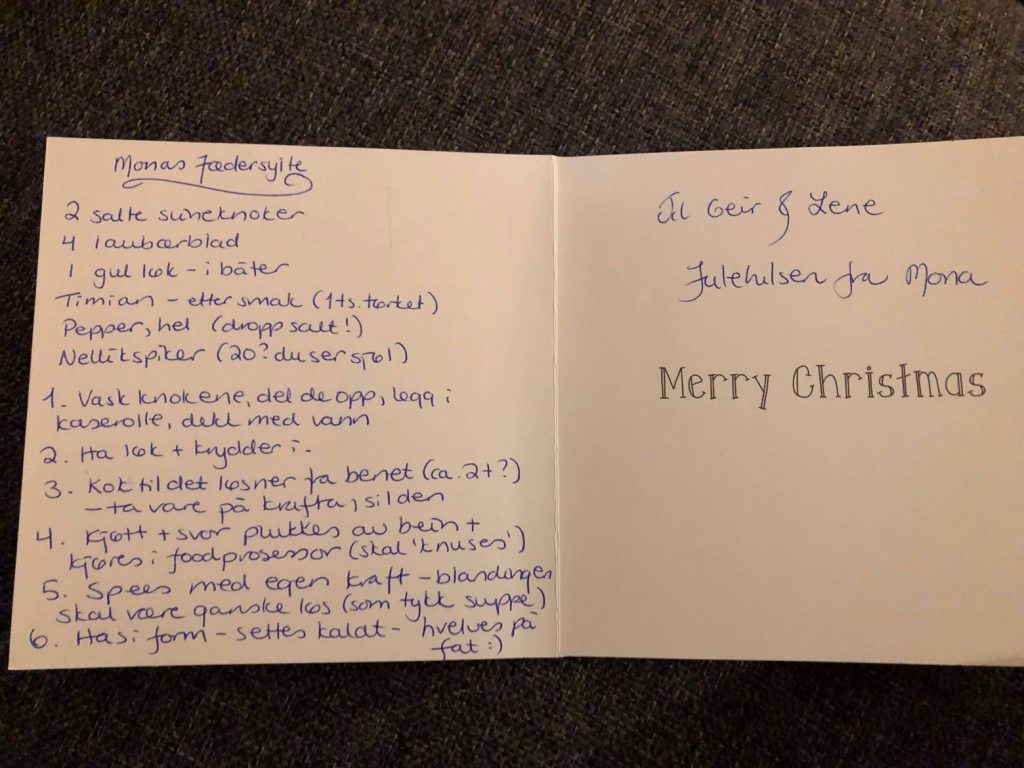 Monas Fædersylte
2 salte svineknoker
4 laubærblad
1 gul løk - i båter
Timian - etter smak (1 ts. tørket)
Pepper, hel (dropp salt!)
Nellikspiker (20? du ser sjøl)
1. Vask knokene, del de opp, legg i
kaserolle, dekk med vann
2. Ha løk + krydder i -
3. Kok til det løsner fra benet (ca. 2 t ?)
- ta vare på krafta, sil den
4. Kjøtt + svor plukkes av bein +
kjøres i foodprosessor (skal 'knuses')
5. Spees med egen kraft - blandingen
skal være ganske løs (som tykk suppe)
6. Has i form - settes kaldt - hvelves på
fat :)
Til Geir & Lene
Julehilsen fra Mona
Merry Christmas